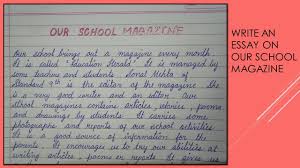 OUR SCHOOL MAGAZINE
Our school brings out a magazine every month.
It is called 'Education Herald'. It is managed by
some teachers and students. Sonal Mehta of
Standard 9th is the editor of the magazine. She
is a very good writer and an editor. Our
school magazines contains articles, stories, poems
and drawings by students. It carries some
photographs and reports of our school activities
It is a good source of information for the
parents. It encourages us to try our abilities at
writing articles, poems or reports. It gives us
WRITE AN
ESSAY ON
OUR SCHOOL
MAGAZINE